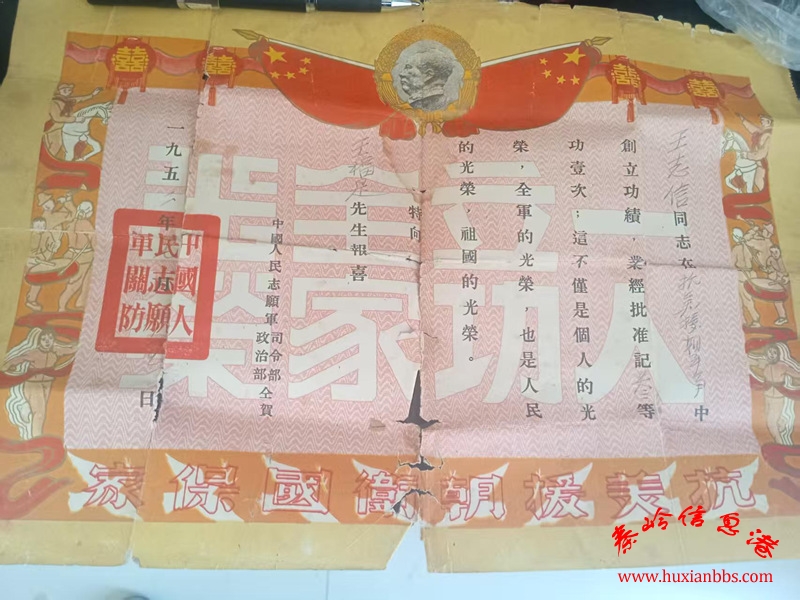 囍 囍 囍 囍
一人立功
全家光榮
王志信同志在抗美援朝 中
創立功績，業經批准記叁等
功壹次；這不僅是個人的光
榮，全軍的光榮，也是人民
的光榮，祖國的光榮。
特向
王福足先生報喜
中國人民志願軍司令部
政治部 仝賀
一九五 年 日
中國人
民志願
軍關防
抗美援朝衛國保家
秦岭信息港
www.huxianbbs.com